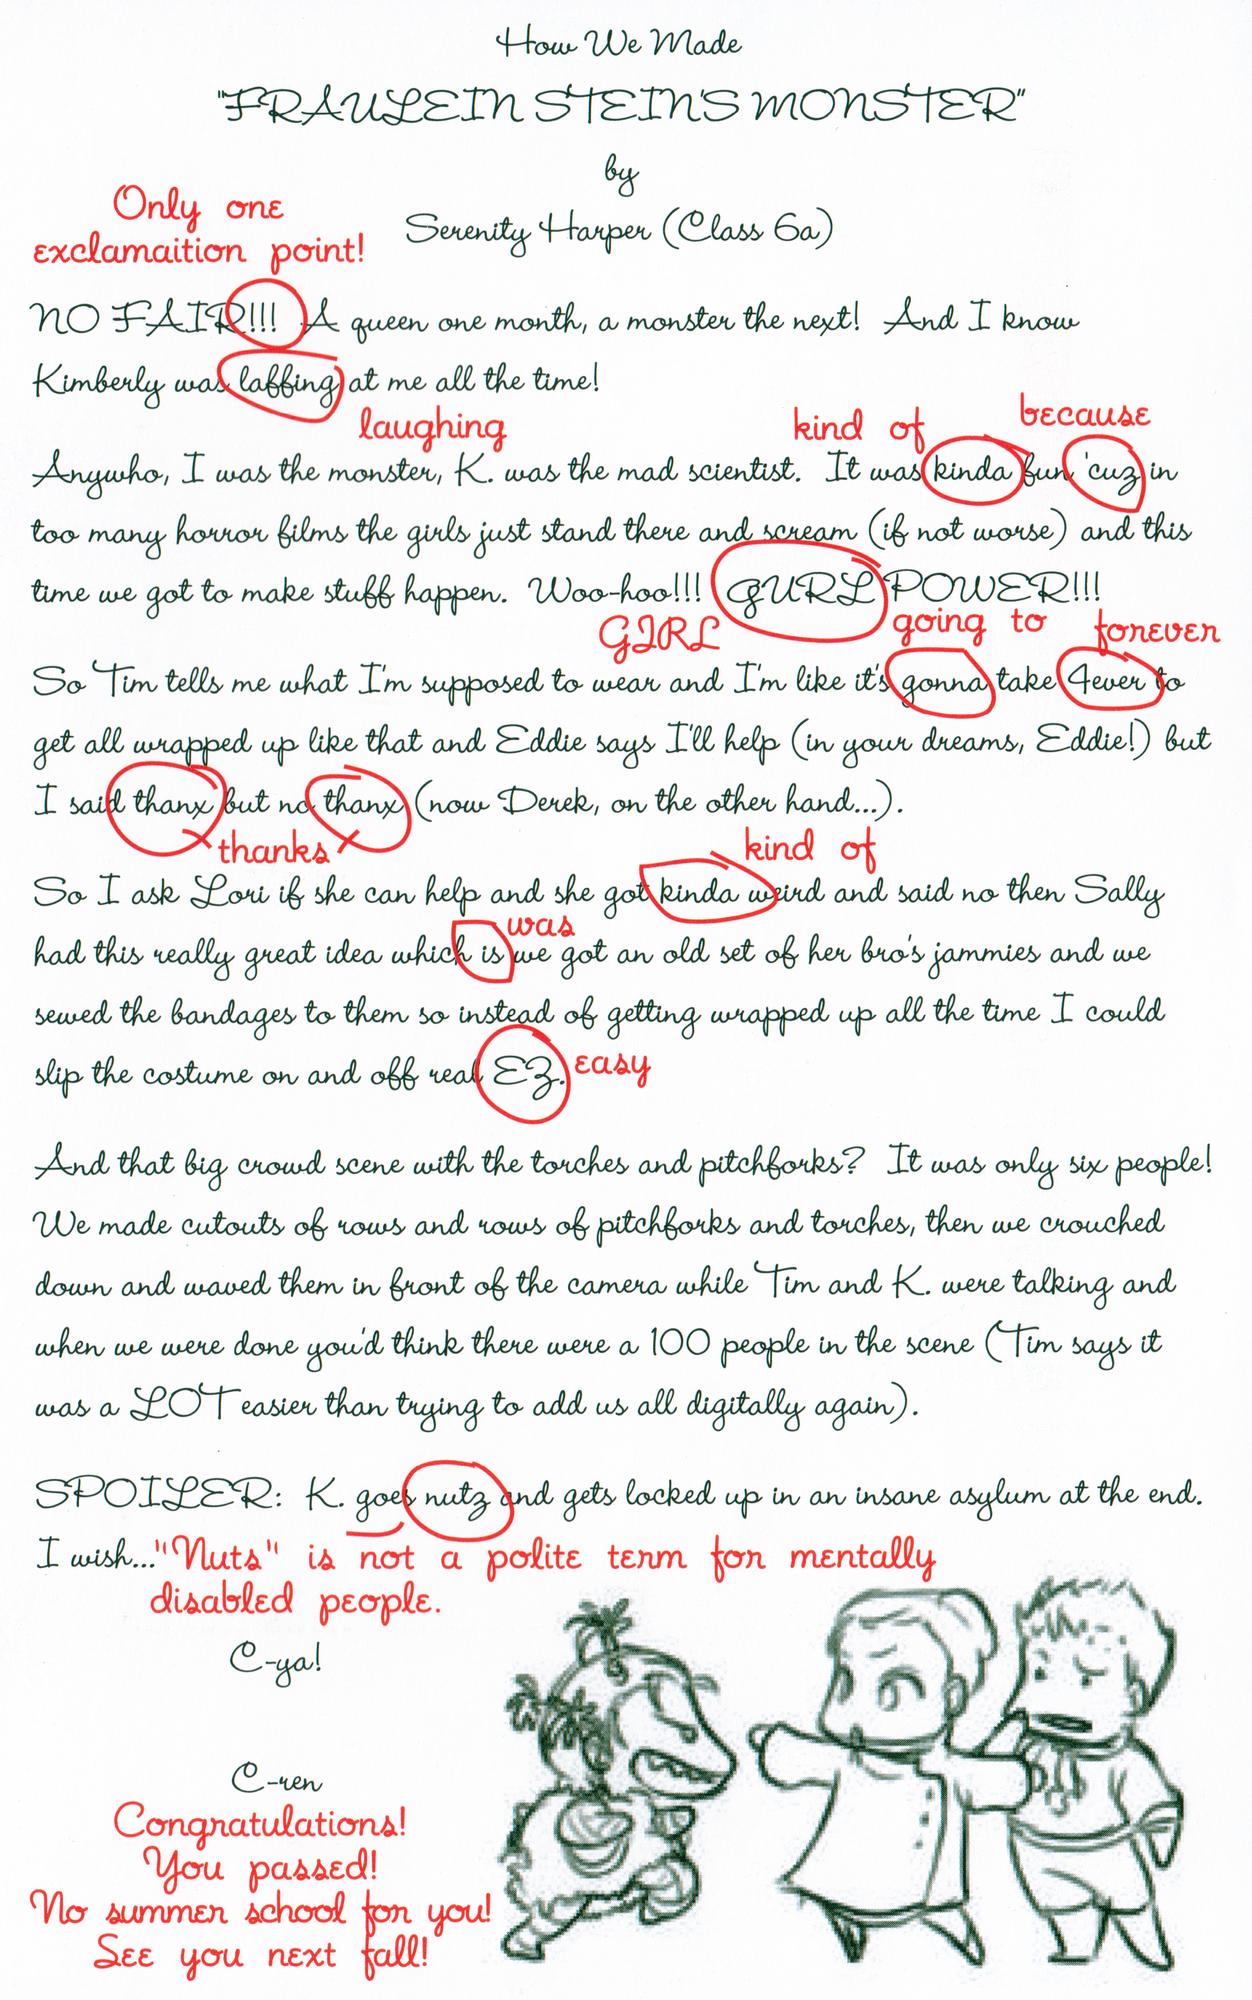 How We Made
"FRAULEIN STEIN'S MONSTER"
by
Only one
exclamaition point!
Serenity Harper (Class 6a)
NO FAIR!!! A queen one month, a monster the next! And I know
Kimberly was laffing at me all the time!
laughing
kind of
because
Anywho, I was the monster, K. was the mad scientist. It was kinda fun 'cuz in
too many horror films the girls just stand there and scream (if not worse) and this
time we got to make stuff happen. Woo-hoo!!! GURL POWER!!!
GIRL
going to
forever
So Tim tells me what I'm supposed to wear and I'm like it's gonna take 4ever to
get all wrapped up like that and Eddie says I'll help (in your dreams, Eddie!) but
I said thanx but no thanx (now Derek, on the other hand...).
thanks
kind of
So I ask Lori if she can help and she got kinda weird and said no then Sally
was
had this really great idea which is we got an old set of her bro's jammies and we
sewed the bandages to them so instead of getting wrapped up all the time I could
slip the costume on and off real EZ.
easy
And that big crowd scene with the torches and pitchforks? It was only six people!
We made cutouts of rows and rows of pitchforks and torches, then we crouched
down and waved them in front of the camera while Tim and K. were talking and
when we were done you'd think there were a 100 people in the scene (Tim says it
was a LOT easier than trying to add us all digitally again).
SPOILER: K. goes nutz and gets locked up in an insane asylum at the end.
I wish...
"Nuts" is not a polite term for mentally
disabled people.
C-ya!
C-ren
Congratulations!
You passed!
No summer school for you!
See you next fall!